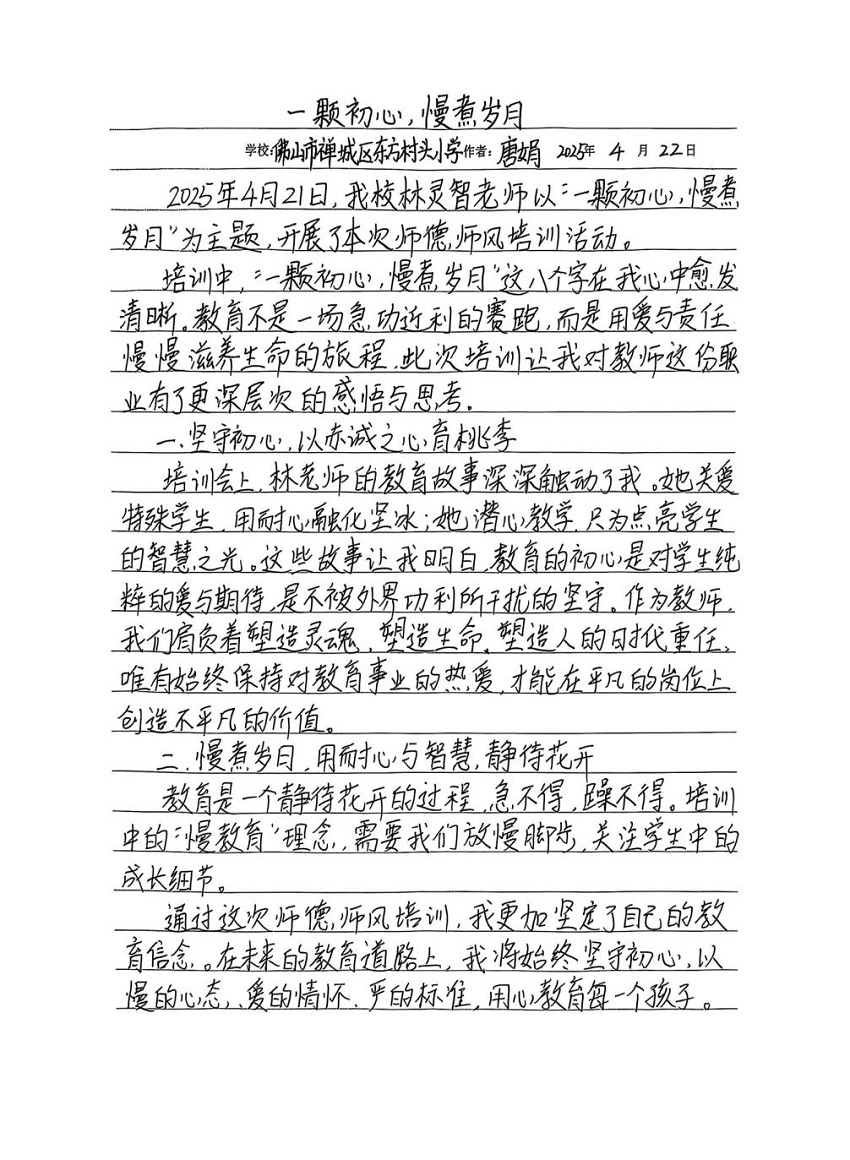 一颗初心，慢煮岁月
学校：佛山市禅城区东方村头小学 作者：唐娟 2025年 4 月 22 日
2025年4月21日，我校林灵智老师以“一颗初心，慢煮
岁月”为主题，开展了本次师德师风培训活动。
培训中，“一颗初心，慢煮岁月”这八个字在我心中愈发
清晰。教育不是一场急功近利的赛跑，而是用爱与责任
慢慢滋养生命的旅程，此次培训让我对教师这份职
业有了更深层次的感悟与思考。
一、坚守初心，以赤诚之心育桃李
培训会上，林老师的教育故事深深触动了我。她关爱
特殊学生，用耐心融化坚冰；她潜心教学，只为点亮学生
的智慧之光。这些故事让我明白，教育的初心是对学生纯
粹的爱与期待，是不被外界功利所干扰的坚守。作为教师，
我们肩负着塑造灵魂、塑造生命、塑造人的时代重任，
唯有始终保持对教育事业的热爱，才能在平凡的岗位上
创造不平凡的价值。
二、慢煮岁月，用耐心与智慧，静待花开
教育是一个静待花开的过程，急不得，躁不得。培训
中的“慢教育”理念，需要我们放慢脚步，关注学生中的
成长细节。
通过这次师德师风培训，我更加坚定了自己的教
育信念。在未来的教育道路上，我将始终坚守初心，以
慢的心态、爱的情怀、严的标准，用心教育每一个孩子。